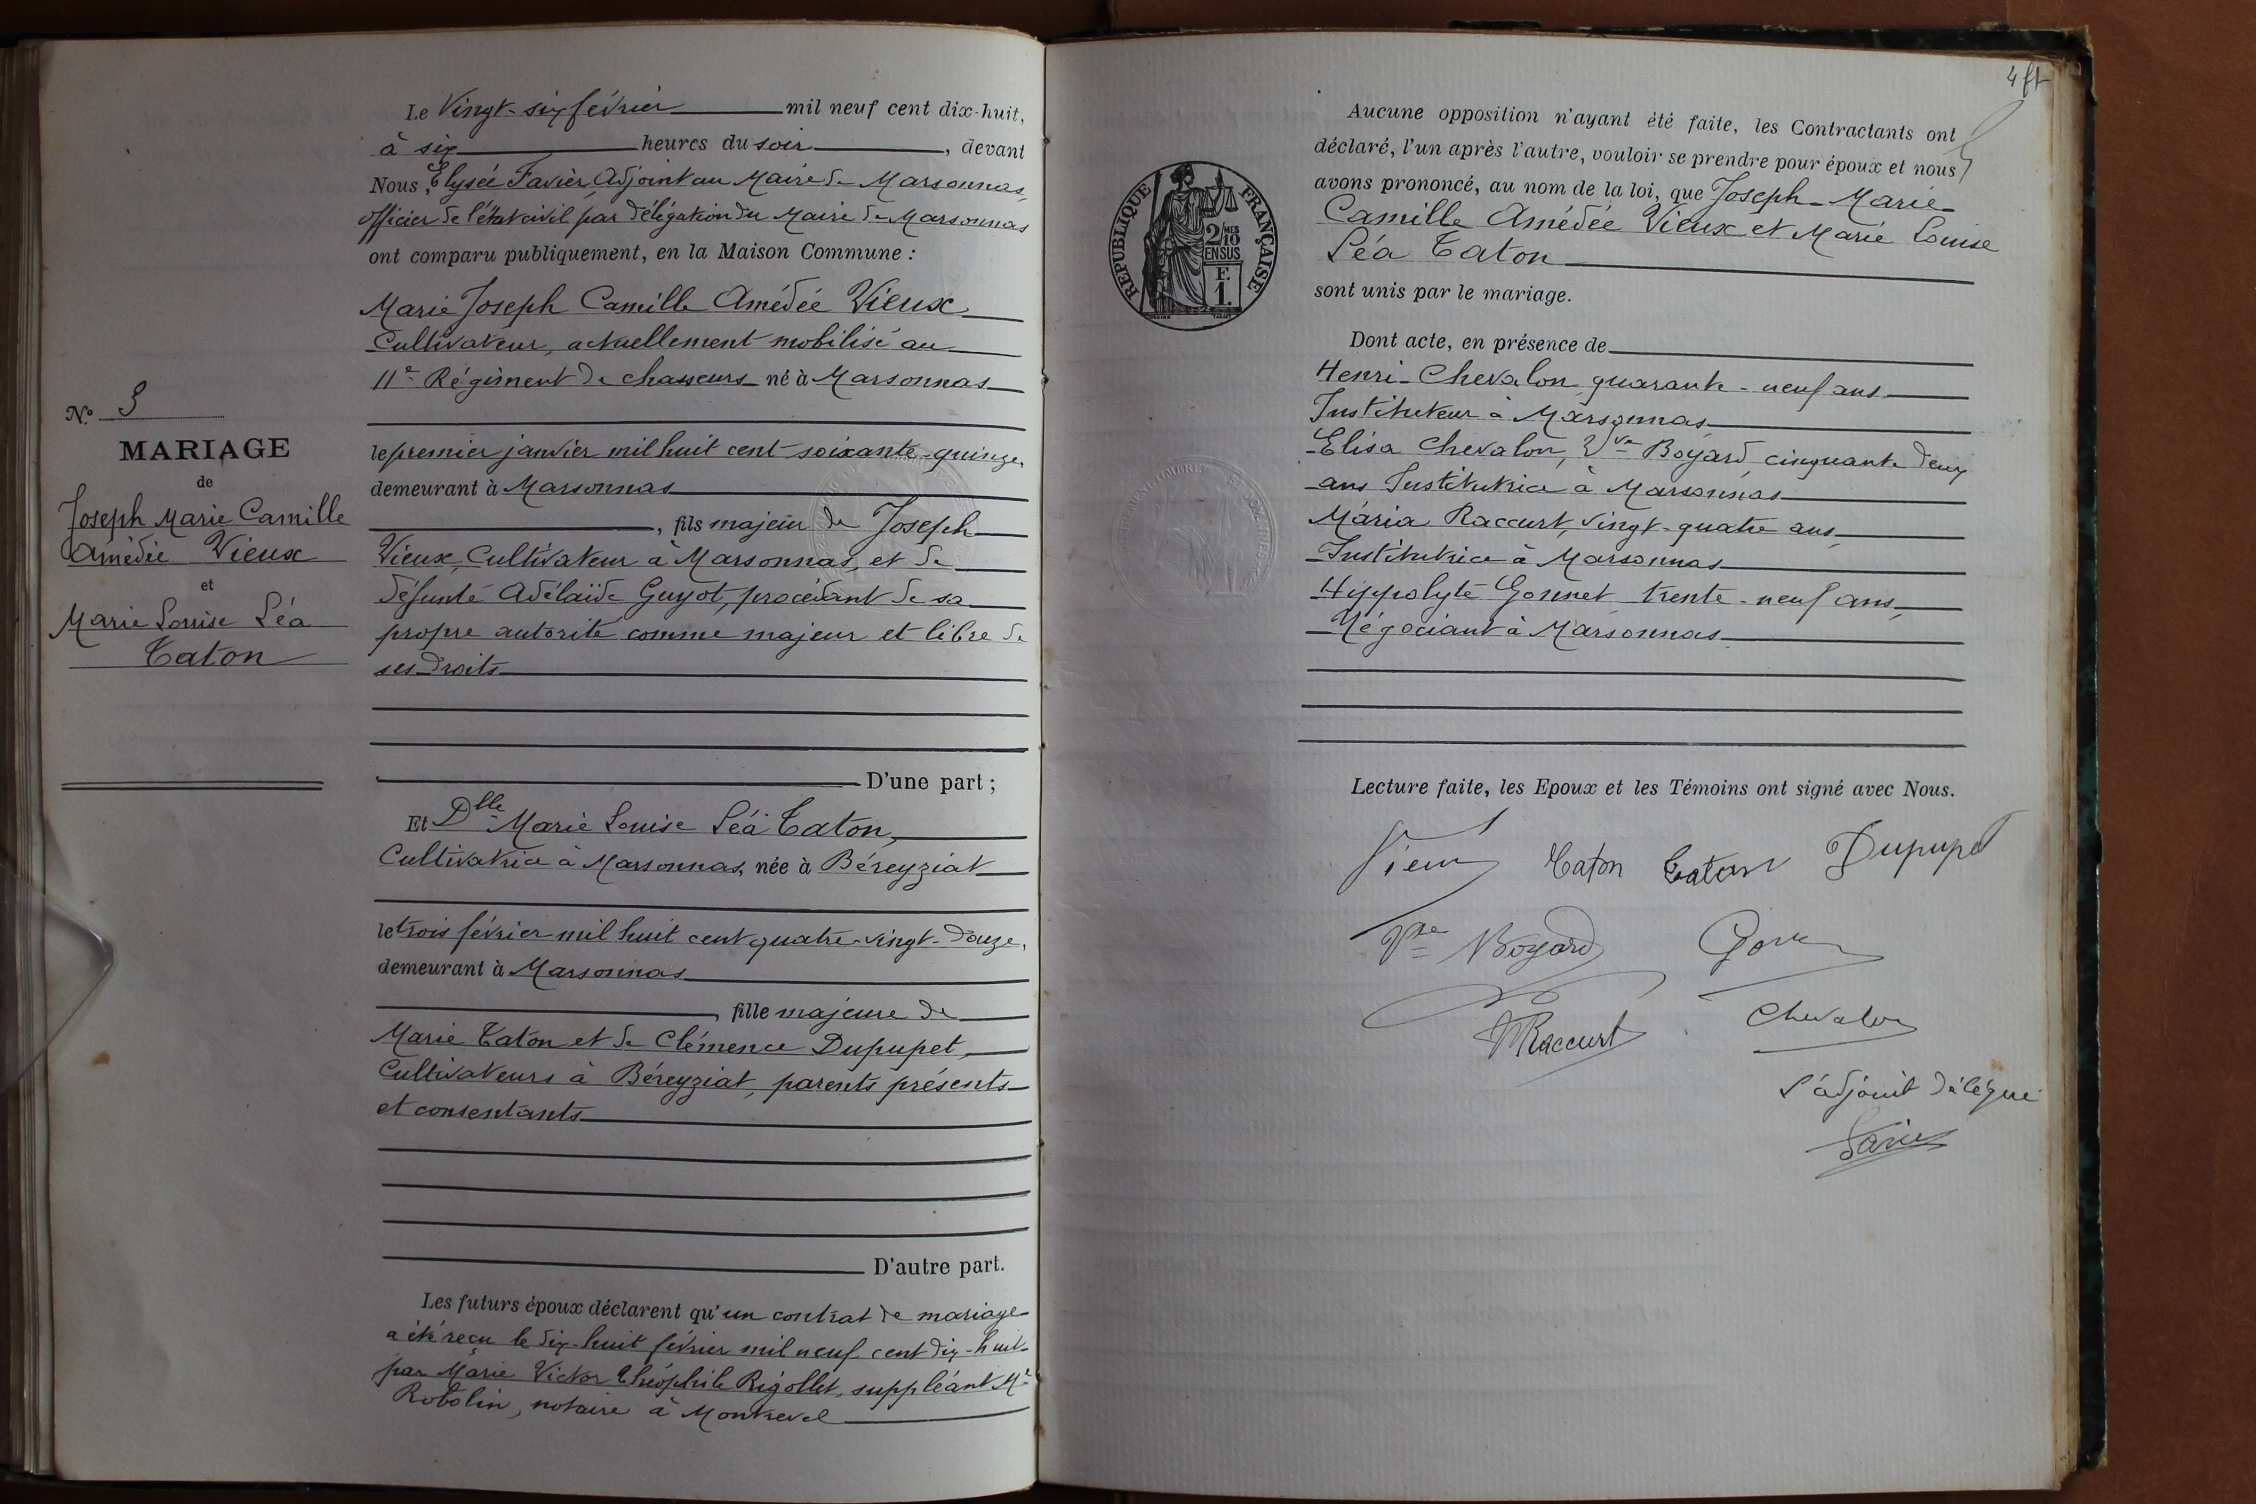 Le Vingt-six février mil neuf cent dix-huit,
à six heures du soir, devant
Nous, Elysée Favier, Adjoint au Maire de Marsonnas,
officier de l'état civil par délégation du Maire de Marsonnas
ont comparu publiquement, en la Maison Commune :
Marie Joseph Camille Amédée Vieux
Cultivateur, actuellement mobilisé au
11e Régiment de chasseurs né à Marsonnas
le premier janvier mil huit cent soixante-quinze,
demeurant à Marsonnas
, fils majeur de Joseph
Vieux, Cultivateur à Marsonnas, et de
défunte Adélaïde Guyot, procédant de sa
propre autorité comme majeur et libre de
ses droits
D'une part ;
Et Dlle Marie Louise Léa Taton,
Cultivatrice à Marsonnas, née à Béreyziat
le trois février mil huit cent quatre-vingt-douze,
demeurant à Marsonnas
, fille majeure de
Marie Taton et de Clémence Dupupet,
Cultivateurs à Béreyziat, parents présents
et consentants
D'autre part.
Les futurs époux déclarent qu'un contrat de mariage
a été reçu le dix-huit février mil neuf cent dix-huit
par Marie Victor Théophile Rigollet, suppléant Me
Robolin, notaire à Montrevel
N.º 3
MARIAGE
de
Joseph Marie Camille
Amédée Vieux
et
Marie Louise Léa
Taton
4 ft
Aucune opposition n'ayant été faite, les Contractants ont
déclaré, l'un après l'autre, vouloir se prendre pour époux et nous
avons prononcé, au nom de la loi, que Joseph-Marie-
Camille Amédée Vieux et Marie Louise
Léa Taton
sont unis par le mariage.
RÉPUBLIQUE FRANÇAISE
2/10
EN SUS
F.
1.
Dont acte, en présence de
Henri Chevalon quarante-neuf ans
Instituteur à Marsonnas
Elisa Chevalon, Vve Boyard, cinquante deux
ans Institutrice à Marsonnas
Maria Raccurt, vingt-quatre ans,
Institutrice à Marsonnas
Hippolyte Gonnet trente-neuf ans,
Négociant à Marsonnas
Lecture faite, les Epoux et les Témoins ont signé avec Nous.
Vieux Taton Taton Dupupet
Vve Boyard
MRaccurt Chevalon
L'adjoint délégué
Favier